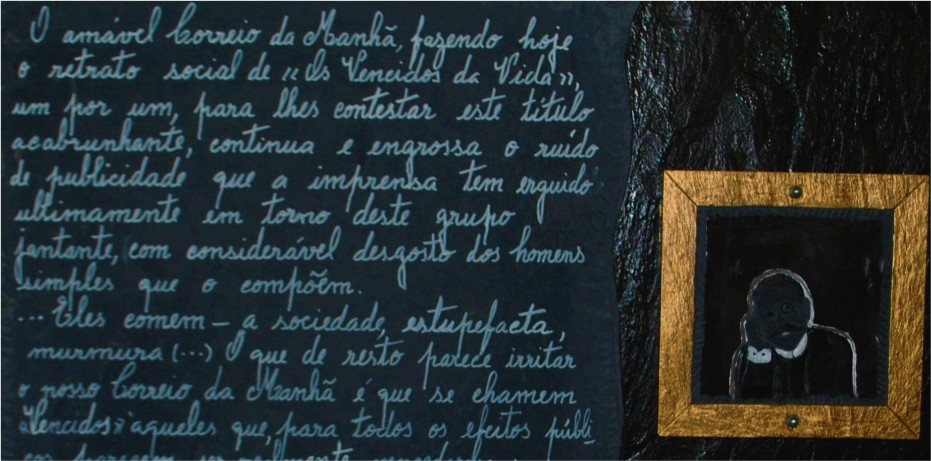 O amável Correio da Manhã, fazendo hoje
o retrato social de «Os Vencidos da Vida»,
um por um, para lhes contestar este título
acabrunhante, continua e engrossa o ruído
de publicidade que a imprensa tem erguido
ultimamente em torno deste grupo
jantante, com considerável desgosto dos homens
simples que o compõem.
... Eles comem – a sociedade, estupefacta,
murmura (...) O que de resto parece irritar
o nosso Correio da Manhã é que se chamem
«Vencidos» àqueles que, para todos os efeitos públi
cos parecem ser realmente